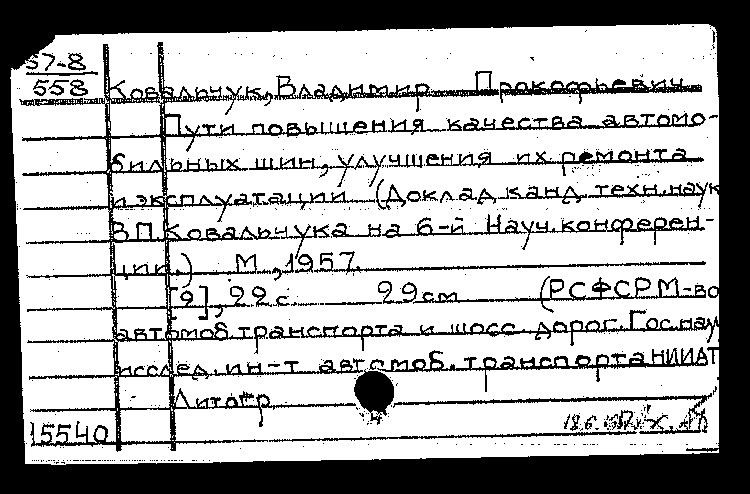 57-8
558
Ковальчук, Владимир Прокофьевич
Пути повышения качества автомо-
бильных шин, улучшения их ремонта
и эксплуатации (Доклад канд. техн. наук
В.П. Ковальчука на 6-й Науч. конферен-
ции.) М., 1957.
[2], 22 с. 29 см (РСФСР М-во
автомоб. транспорта и шосс. дорог. Гос. науч
исслед. ин-т автомоб. транспорта НИИАТ
Литогр
15540